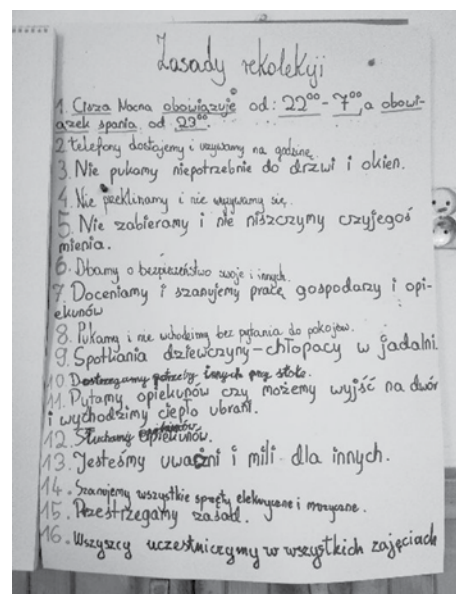 Zasady rekolekcji
1. Cisza Nocna obowiązuje od: 22⁰⁰ - 7⁰⁰, a obowi-
ązek spania od 23⁰⁰.
2 telefony dostajemy i używamy na godzinę
3. Nie pukamy niepotrzebnie do drzwi i okien.
4. Nie przeklinamy i nie wyzywamy się.
5. Nie zabieramy i nie niszczymy czyjegoś
mienia.
6. Dbamy o bezpieczeństwo swoje i innych.
7. Doceniamy i szanujemy pracę gospodarzy i opi-
ekunów
8. Pukamy i nie wchodzimy bez pytania do pokojów.
9. Spotkania dziewczyny-chłopacy w jadalni
10. Dostrzegamy potrzeby innych przy stole.
11. Pytamy opiekunów czy możemy wyjść na dwór
i wychodzimy ciepło ubrani.
12. Słuchamy opiekunów.
13. Jesteśmy uważni i mili dla innych.
14. Szanujemy wszystkie sprzęty elektryczne i muzyczne.
15. Przestrzegamy zasad.
16. Wszyscy uczestniczymy w wszystkich zajęciach